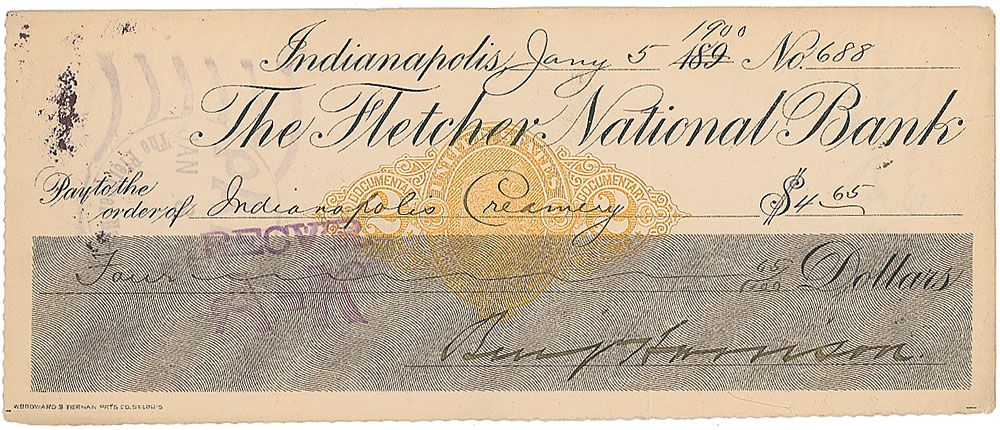 1900
Indianapolis, Jany 5 189 No. 688
The Fletcher National Bank
Pay to the
order of Indianapolis Creamery $4.65
UNITED STATES
DOCUMENTARY DOCUMENTARY
2 2
RECV'D
Four 65/100 Dollars
Benj Harrison.
WOODWARD & TIERNAN PRTG CO. ST. LOUIS